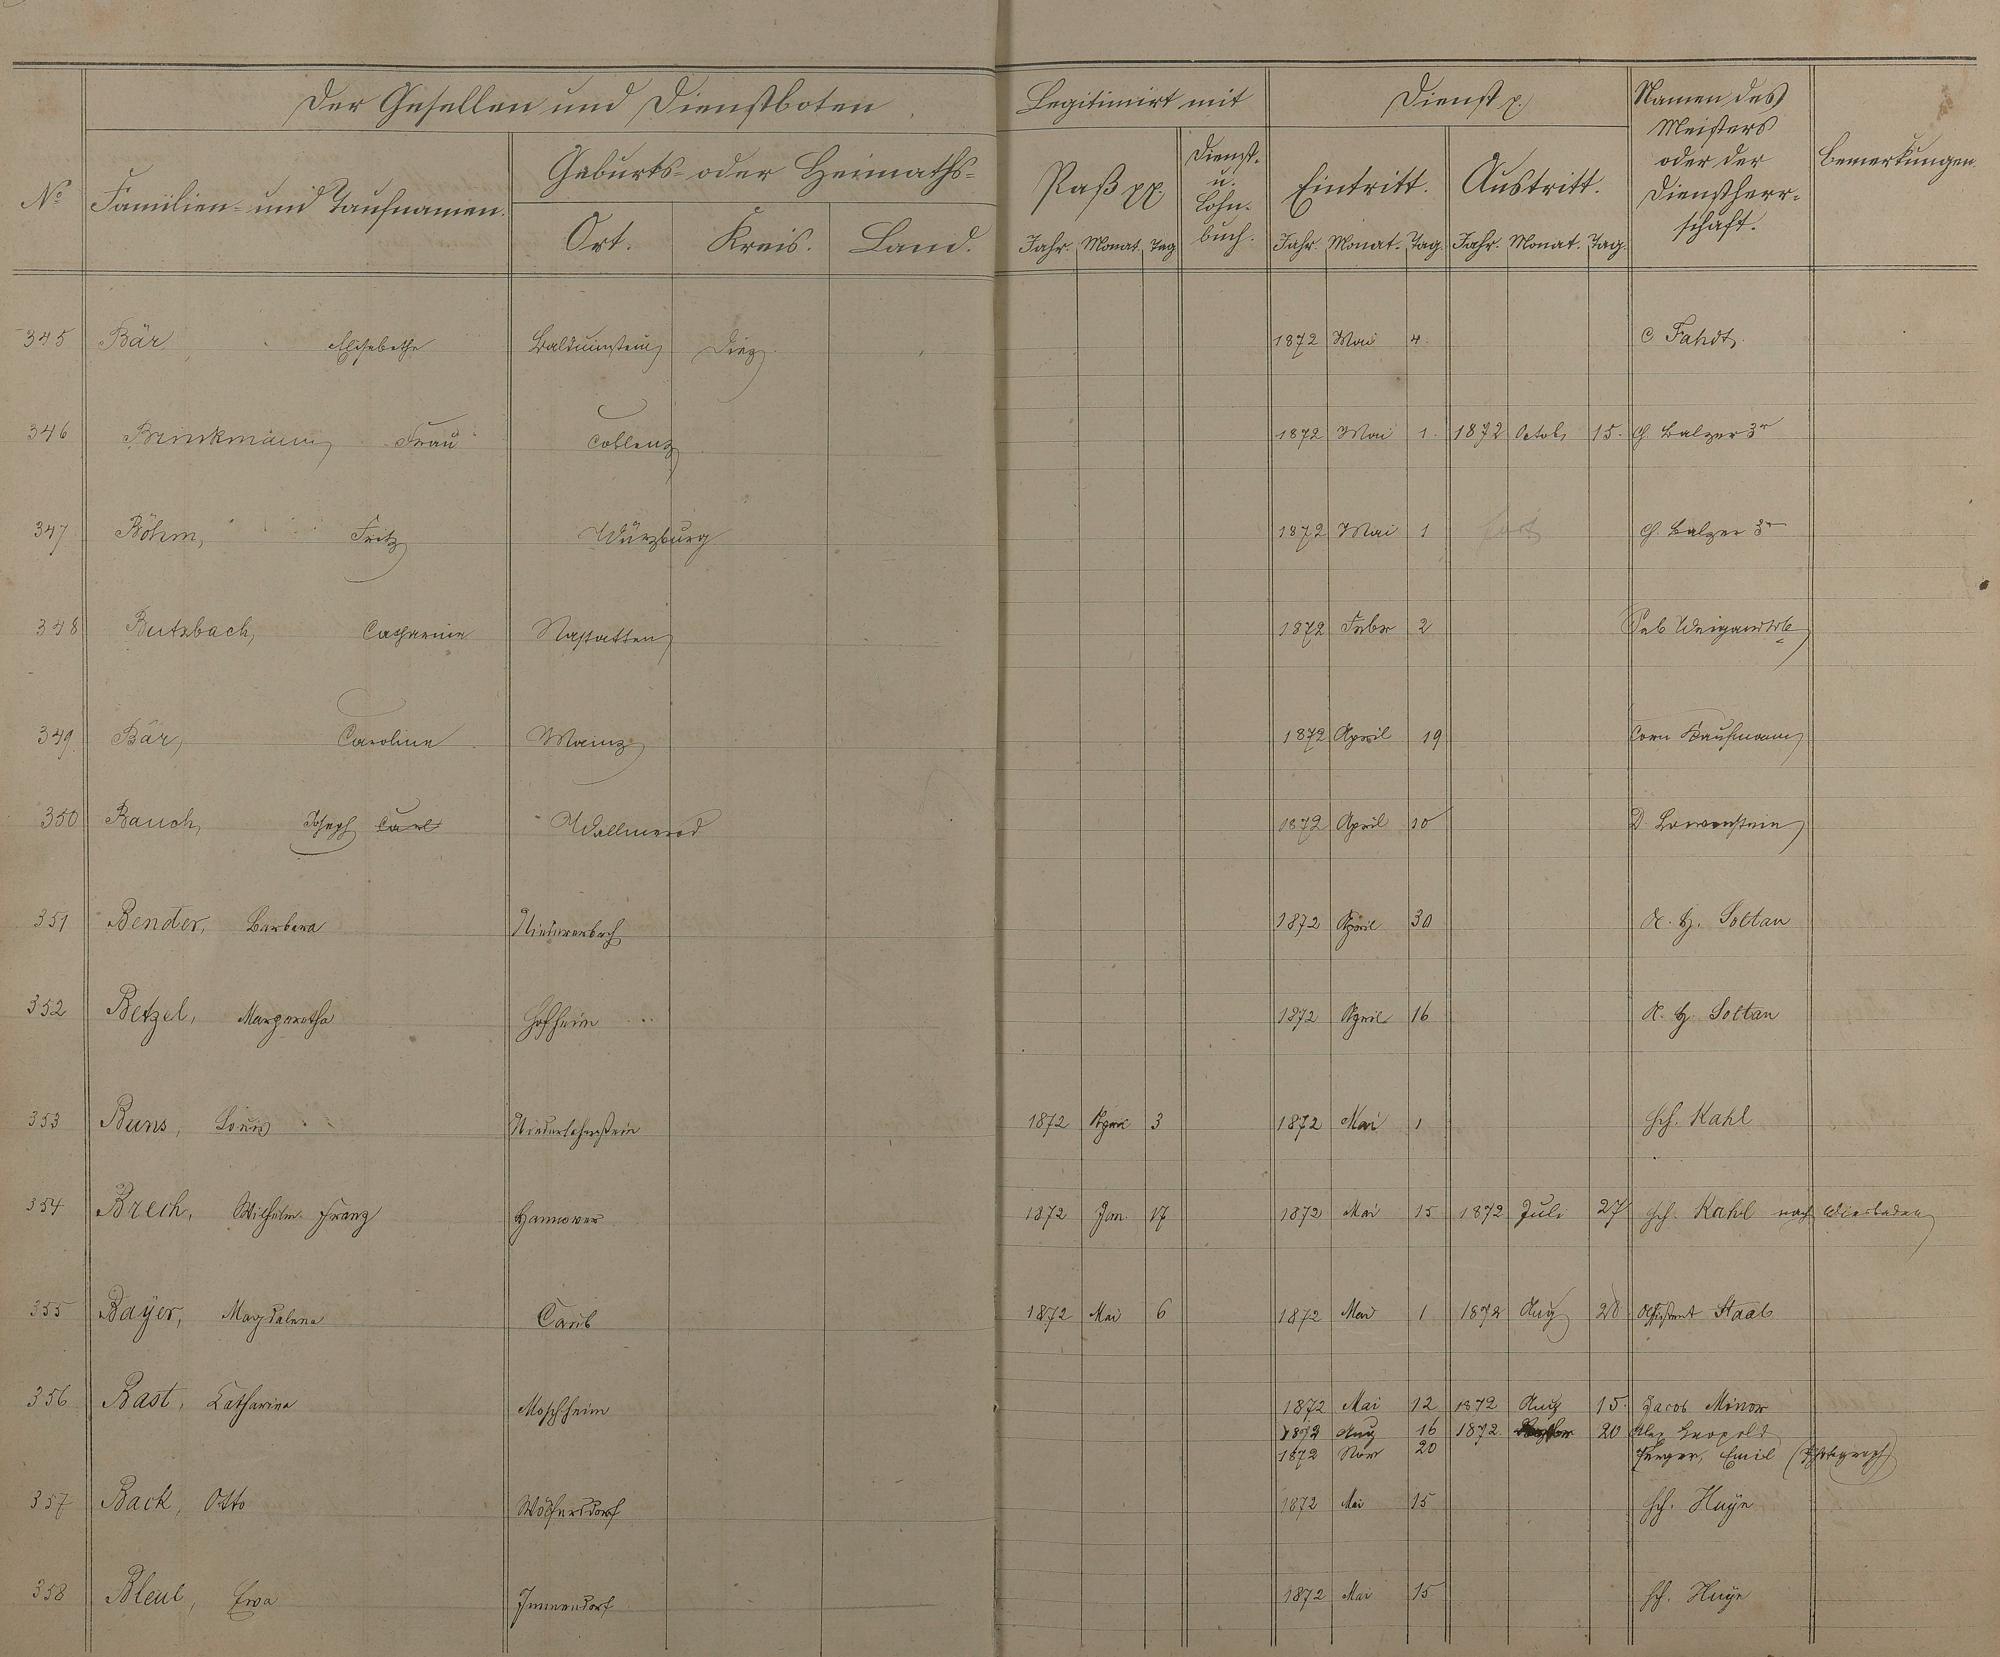 Der Gesellen und Dienstboten
Legitimirt mit
Dienst p.
Namen des
Meisters
oder der
Dienstherr-
schaft.
Bemerkungen.
No
Familien- und Taufnamen.
Geburts- oder Heimaths-
Ort. Kreis. Land.
Paß pp.
Dienst-
u.
Lohn-
buch.
Eintritt. Austritt.
Jahr. Monat. Tag
Jahr. Monat. Tag. Jahr. Monat. Tag.
345 Bär Elisabethe Balduinstein Diez 1872 Mai 4 C Fahdt
346 Brinkmann Frau Coblenz 1872 Mai 1. 1872 Octob 15. Balzer 3r
347 Böhm, Fritz Würzburg 1872 Mai 1 fort Balzer 3r
348 Butzbach, Catharine Nastätten 1872 Febr 2
349 Bär, Caroline Mainz 1872 April 19 Corn Kaufmann
350 Bauch, Joseph Carl Wallmerod 1872 April 10 D. Loewenstein
351 Bender, Barbara 1872 April 30 Soltan
352 Betzel, Margaretha Hofheim 1872 April 16 Soltan
353 Buns, Louis Niederlahnstein 1872 3 1872 Mai 1 Hch. Kahl
354 Brech, Wilhelm Franz Hannover 1872 Jan. 17 1872 Mai 15 1872 Juli 27 Hch. Kahl nach Wiesbaden
355 Bayer, Magdalena Caub 1872 Mai 6 1872 Mai 1 1872 Aug 28 Assistent Staab
356 Bast, Catharina Moschheim 1872 Mai 12 1872 Aug 15. Jacob Minor
1872 Aug 16 1872 20 Leopold
1872 Nov 20 Emil (Photograph)
357 Back, Otto 1872 Mai 15 Hch. Huye
358 Bleul, Eva Immendorf 1872 Mai 15 Hch. Huye